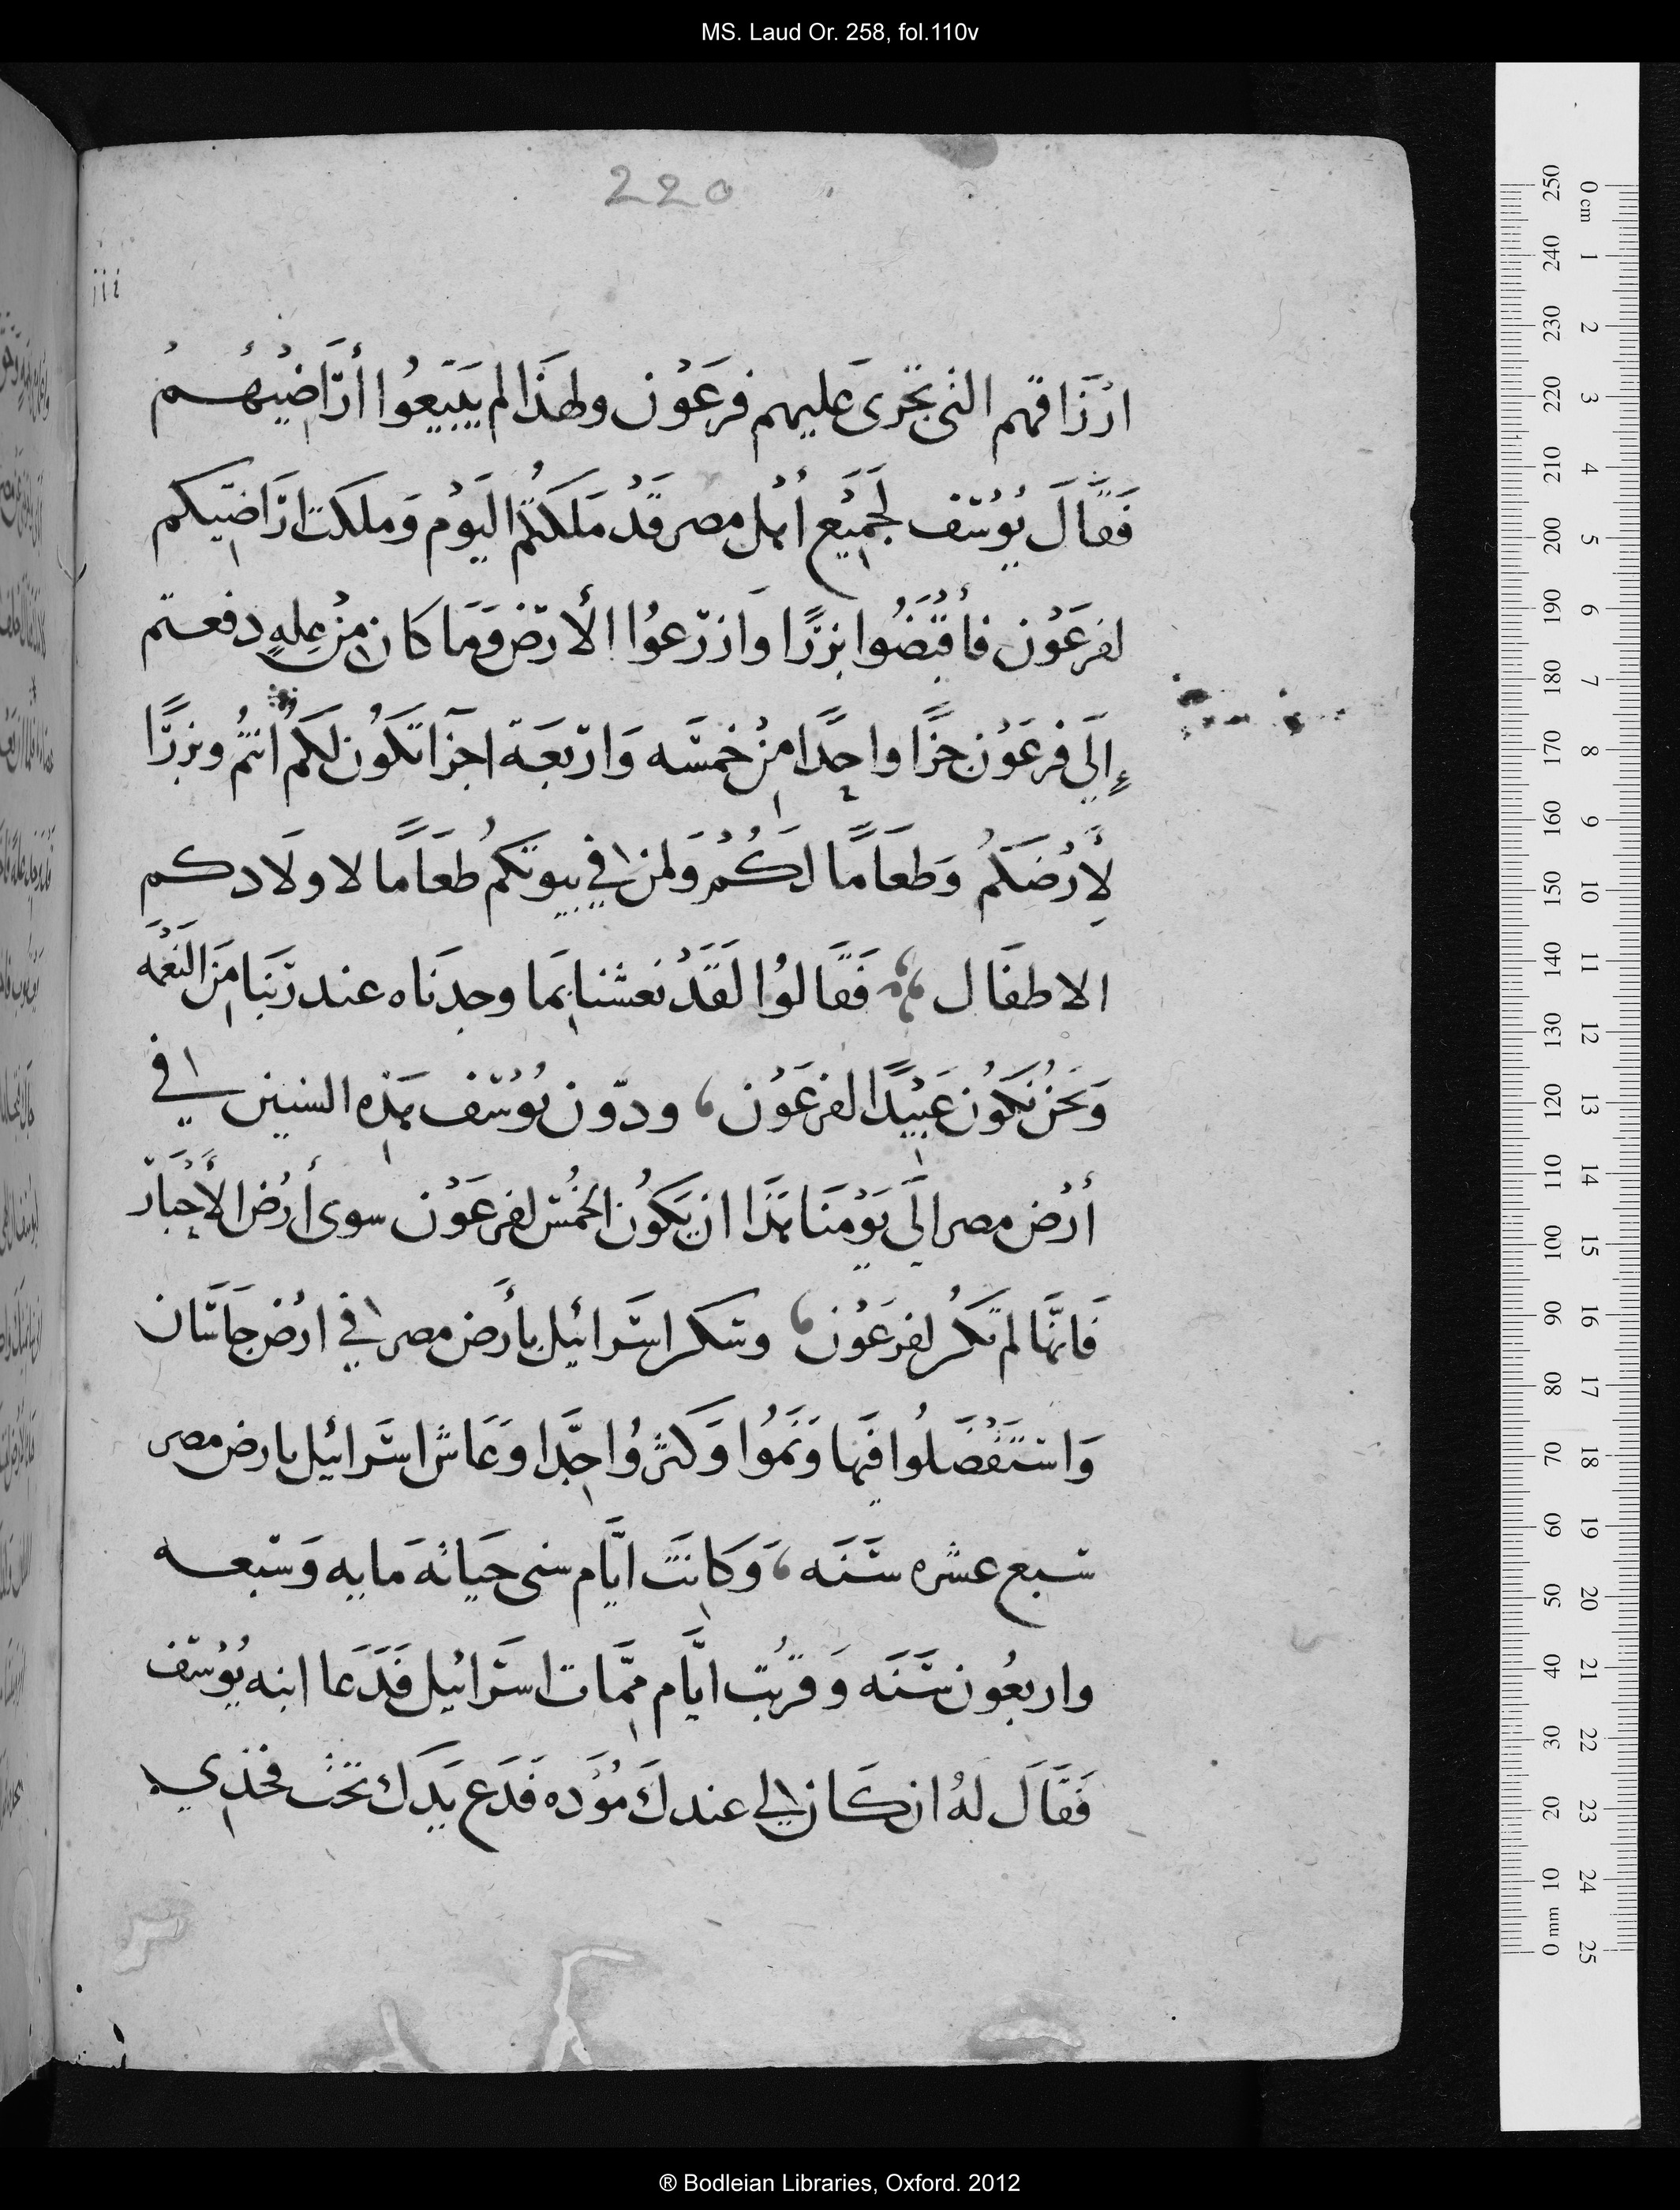 MS. Laud Or. 258, fol.110v
220
ارْزَاقهم التى تجْرى عَليهم فرعَوْن ولهَذَا لم يَبيْعُوا أرَاضِيْهُم
فَقَالَ يُوْسف لجَميْع أهْل مصر قَدْ مَلكتكُم اليَوْم وَملكت ارَاضيكم
لفرعَوْن فأقْبَضُوا بزرًا وَازرعوُا الأرض وَمَا كان مِنْ غلهٍ دفعتم
إلَى فرعَوْن جزًا واحِدًا مِنْ خمسَه وَاربعَة اجزآ تكوُن لكمُ انتُم وبزرًا
لأِرْضكُم وَطعَامًا لكُمْ وَلمن في بيوتكُم طعَامًا لاولَادكم
الاطفَال فَقَالوُا لقَدْ نعشنا بمَا وجدنَاه عند ربّنَا مِنَ النعْمَه
وَنحْنُ نكوُن عَبيْدًا لفرعَوْن ودوّن يُوْسف هَذه السنين في
أرْض مصر الَى يَوْمنَا هَذَا ان يكَوُن الخُمْس لفرعَوْن سوى أرْض الأحْبَار
فَانهَّا لم تكُن لفرعَوْن وسَكن اسَرائيل بأرَض مصر في ارْض جَاسَان
وَاسْتَفْضَلُوا فيَها وَنمَوُا وَكثروُا جدًا وَعَاش اسَرائيل بارض مصر
سَبع عشره سَنَه وَكانَت ايَّام سنى حيَاتهَ مَايه وَسَبعه
واربعُون سَنَه وَقربُت ايَّام ممَات اسَرائيل فَدَعَا ابنه يُوْسف
فَقَالَ لهُ ان كَان لي عندكَ مُوَده فَدَع يَدَك تحَْت فخذي
® Bodleian Libraries, Oxford. 2012